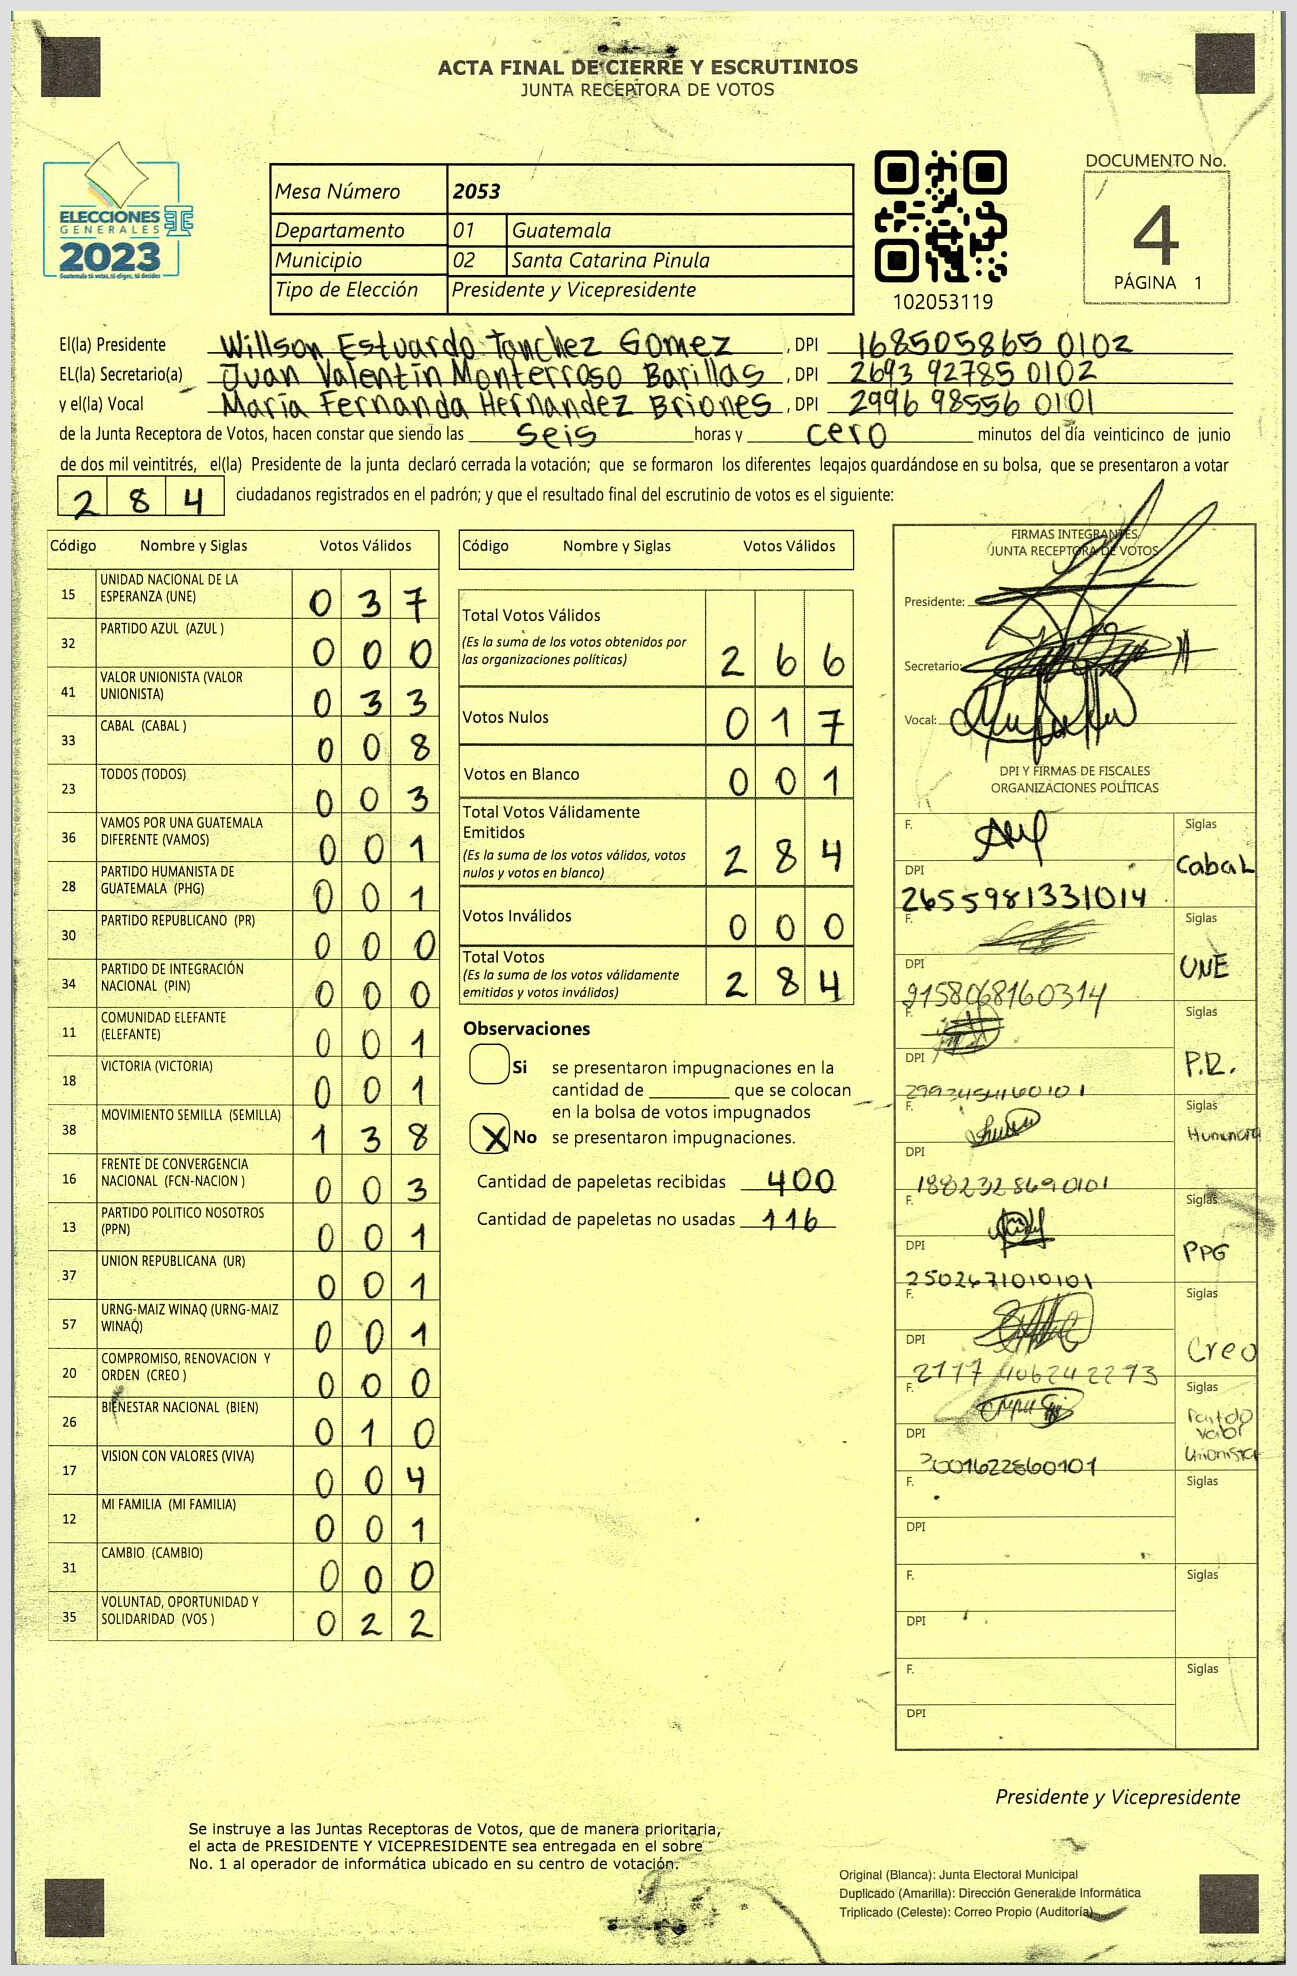 ACTA FINAL DE CIERRE Y ESCRUTINIOS
JUNTA RECEPTORA DE VOTOS
ELECCIONES
GENERALES
2023
Guatemala tú votas, tú eliges, tú decides
Mesa Número 2053
Departamento 01 Guatemala
Municipio 02 Santa Catarina Pinula
Tipo de Elección Presidente y Vicepresidente
102053119
DOCUMENTO No.
4
PÁGINA 1
El(la) Presidente Willson Estuardo Tanchez Gomez, DPI 168505865 0102
EL(la) Secretario(a) Juan Valentín Monterroso Barillas, DPI 2693 92785 0102
y el(la) Vocal María Fernanda Hernández Briones, DPI 2996 98556 0101
de la Junta Receptora de Votos, hacen constar que siendo las seis horas y cero minutos del día veinticinco de junio
de dos mil veintitrés, el(la) Presidente de la junta declaró cerrada la votación; que se formaron los diferentes legajos guardándose en su bolsa, que se presentaron a votar
284 ciudadanos registrados en el padrón; y que el resultado final del escrutinio de votos es el siguiente:
Código Nombre y Siglas Votos Válidos
15 UNIDAD NACIONAL DE LA ESPERANZA (UNE) 037
32 PARTIDO AZUL (AZUL ) 000
41 VALOR UNIONISTA (VALOR UNIONISTA) 033
33 CABAL (CABAL ) 008
23 TODOS (TODOS) 003
36 VAMOS POR UNA GUATEMALA DIFERENTE (VAMOS) 001
28 PARTIDO HUMANISTA DE GUATEMALA (PHG) 001
30 PARTIDO REPUBLICANO (PR) 000
34 PARTIDO DE INTEGRACIÓN NACIONAL (PIN) 000
11 COMUNIDAD ELEFANTE (ELEFANTE) 001
18 VICTORIA (VICTORIA) 001
38 MOVIMIENTO SEMILLA (SEMILLA) 138
16 FRENTE DE CONVERGENCIA NACIONAL (FCN-NACION ) 003
13 PARTIDO POLITICO NOSOTROS (PPN) 001
37 UNION REPUBLICANA (UR) 001
57 URNG-MAIZ WINAQ (URNG-MAIZ WINAQ) 001
20 COMPROMISO, RENOVACION Y ORDEN (CREO ) 000
26 BIENESTAR NACIONAL (BIEN) 010
17 VISION CON VALORES (VIVA) 004
12 MI FAMILIA (MI FAMILIA) 001
31 CAMBIO (CAMBIO) 000
35 VOLUNTAD, OPORTUNIDAD Y SOLIDARIDAD (VOS ) 022
Código Nombre y Siglas Votos Válidos
Total Votos Válidos 266
(Es la suma de los votos obtenidos por
las organizaciones políticas)
Votos Nulos 017
Votos en Blanco 001
Total Votos Válidamente
Emitidos 284
(Es la suma de los votos válidos, votos
nulos y votos en blanco)
Votos Inválidos 000
Total Votos 284
(Es la suma de los votos válidamente
emitidos y votos inválidos)
Observaciones
Si se presentaron impugnaciones en la
cantidad de ________ que se colocan
en la bolsa de votos impugnados
X No se presentaron impugnaciones.
Cantidad de papeletas recibidas 400
Cantidad de papeletas no usadas 116
FIRMAS INTEGRANTES
JUNTA RECEPTORA DE VOTOS
Presidente:
Secretario:
Vocal:
DPI Y FIRMAS DE FISCALES
ORGANIZACIONES POLÍTICAS
F. Siglas
DPI Cabal
2655981331014
F. Siglas
DPI UNE
9158068160314
F. Siglas
DPI P.R.
F. Siglas
DPI
1882328690101
F. Siglas
DPI PPG
2502671010101
F. Siglas
DPI Creo
F. Siglas
DPI Partido Valor Unionista
3001622860101
F. Siglas
DPI
F. Siglas
DPI
F. Siglas
DPI
Presidente y Vicepresidente
Se instruye a las Juntas Receptoras de Votos, que de manera prioritaria,
el acta de PRESIDENTE Y VICEPRESIDENTE sea entregada en el sobre
No. 1 al operador de informática ubicado en su centro de votación.
Original (Blanca): Junta Electoral Municipal
Duplicado (Amarilla): Dirección General de Informática
Triplicado (Celeste): Correo Propio (Auditoría)